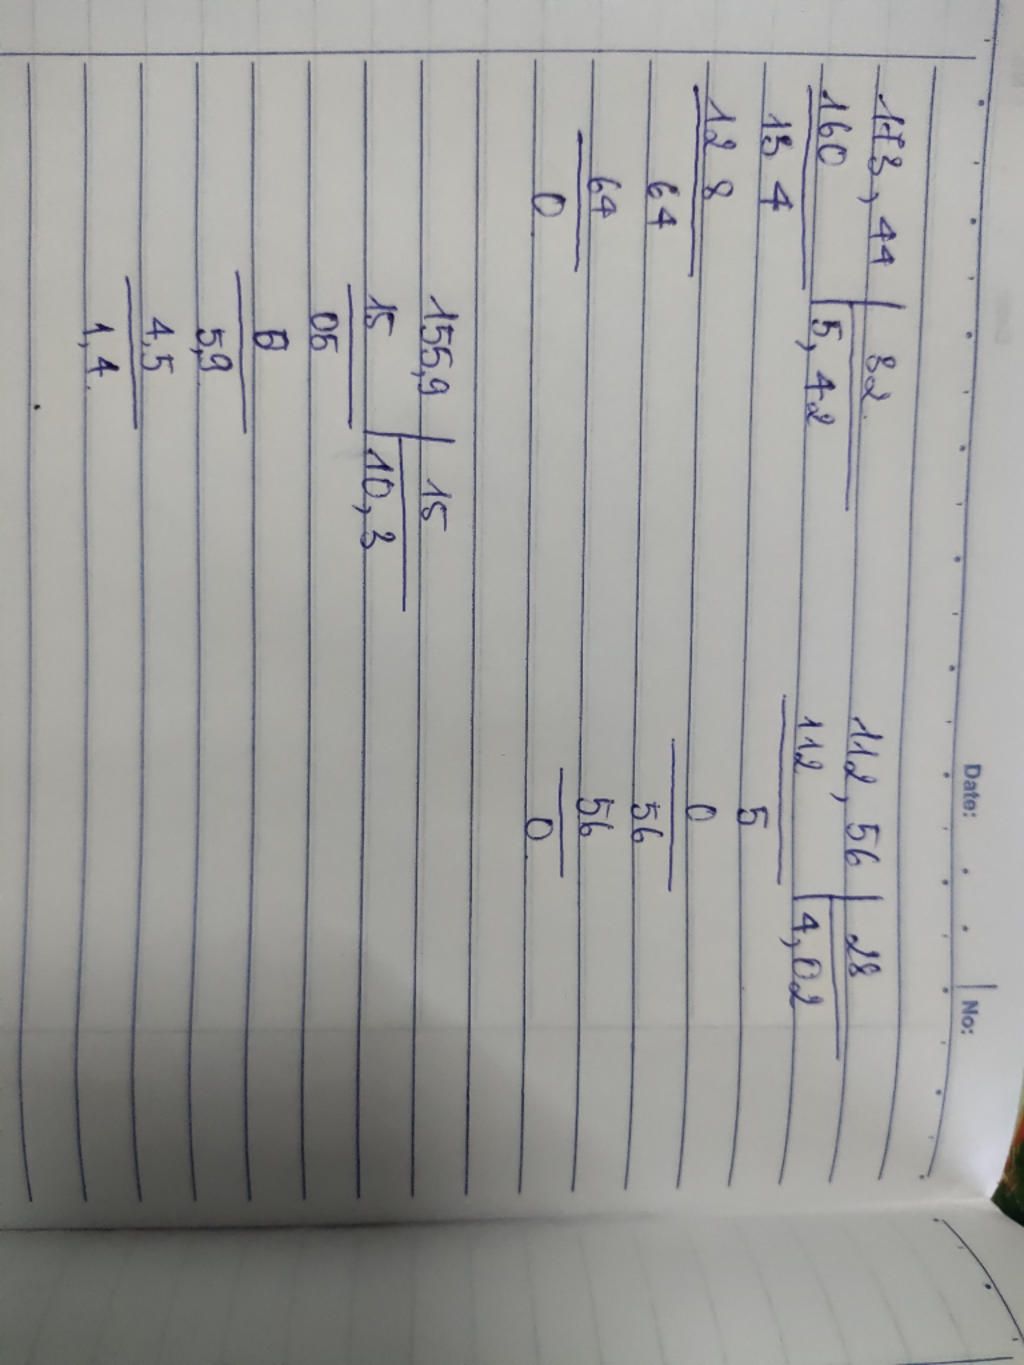 Date: No:
173,44 32
160 5,42
13 4
12 8
64
64
0
112,56 28
112 4,02
5
0
56
56
0
155,9 15
15 10,3
05
0
5,9
4,5
1,4